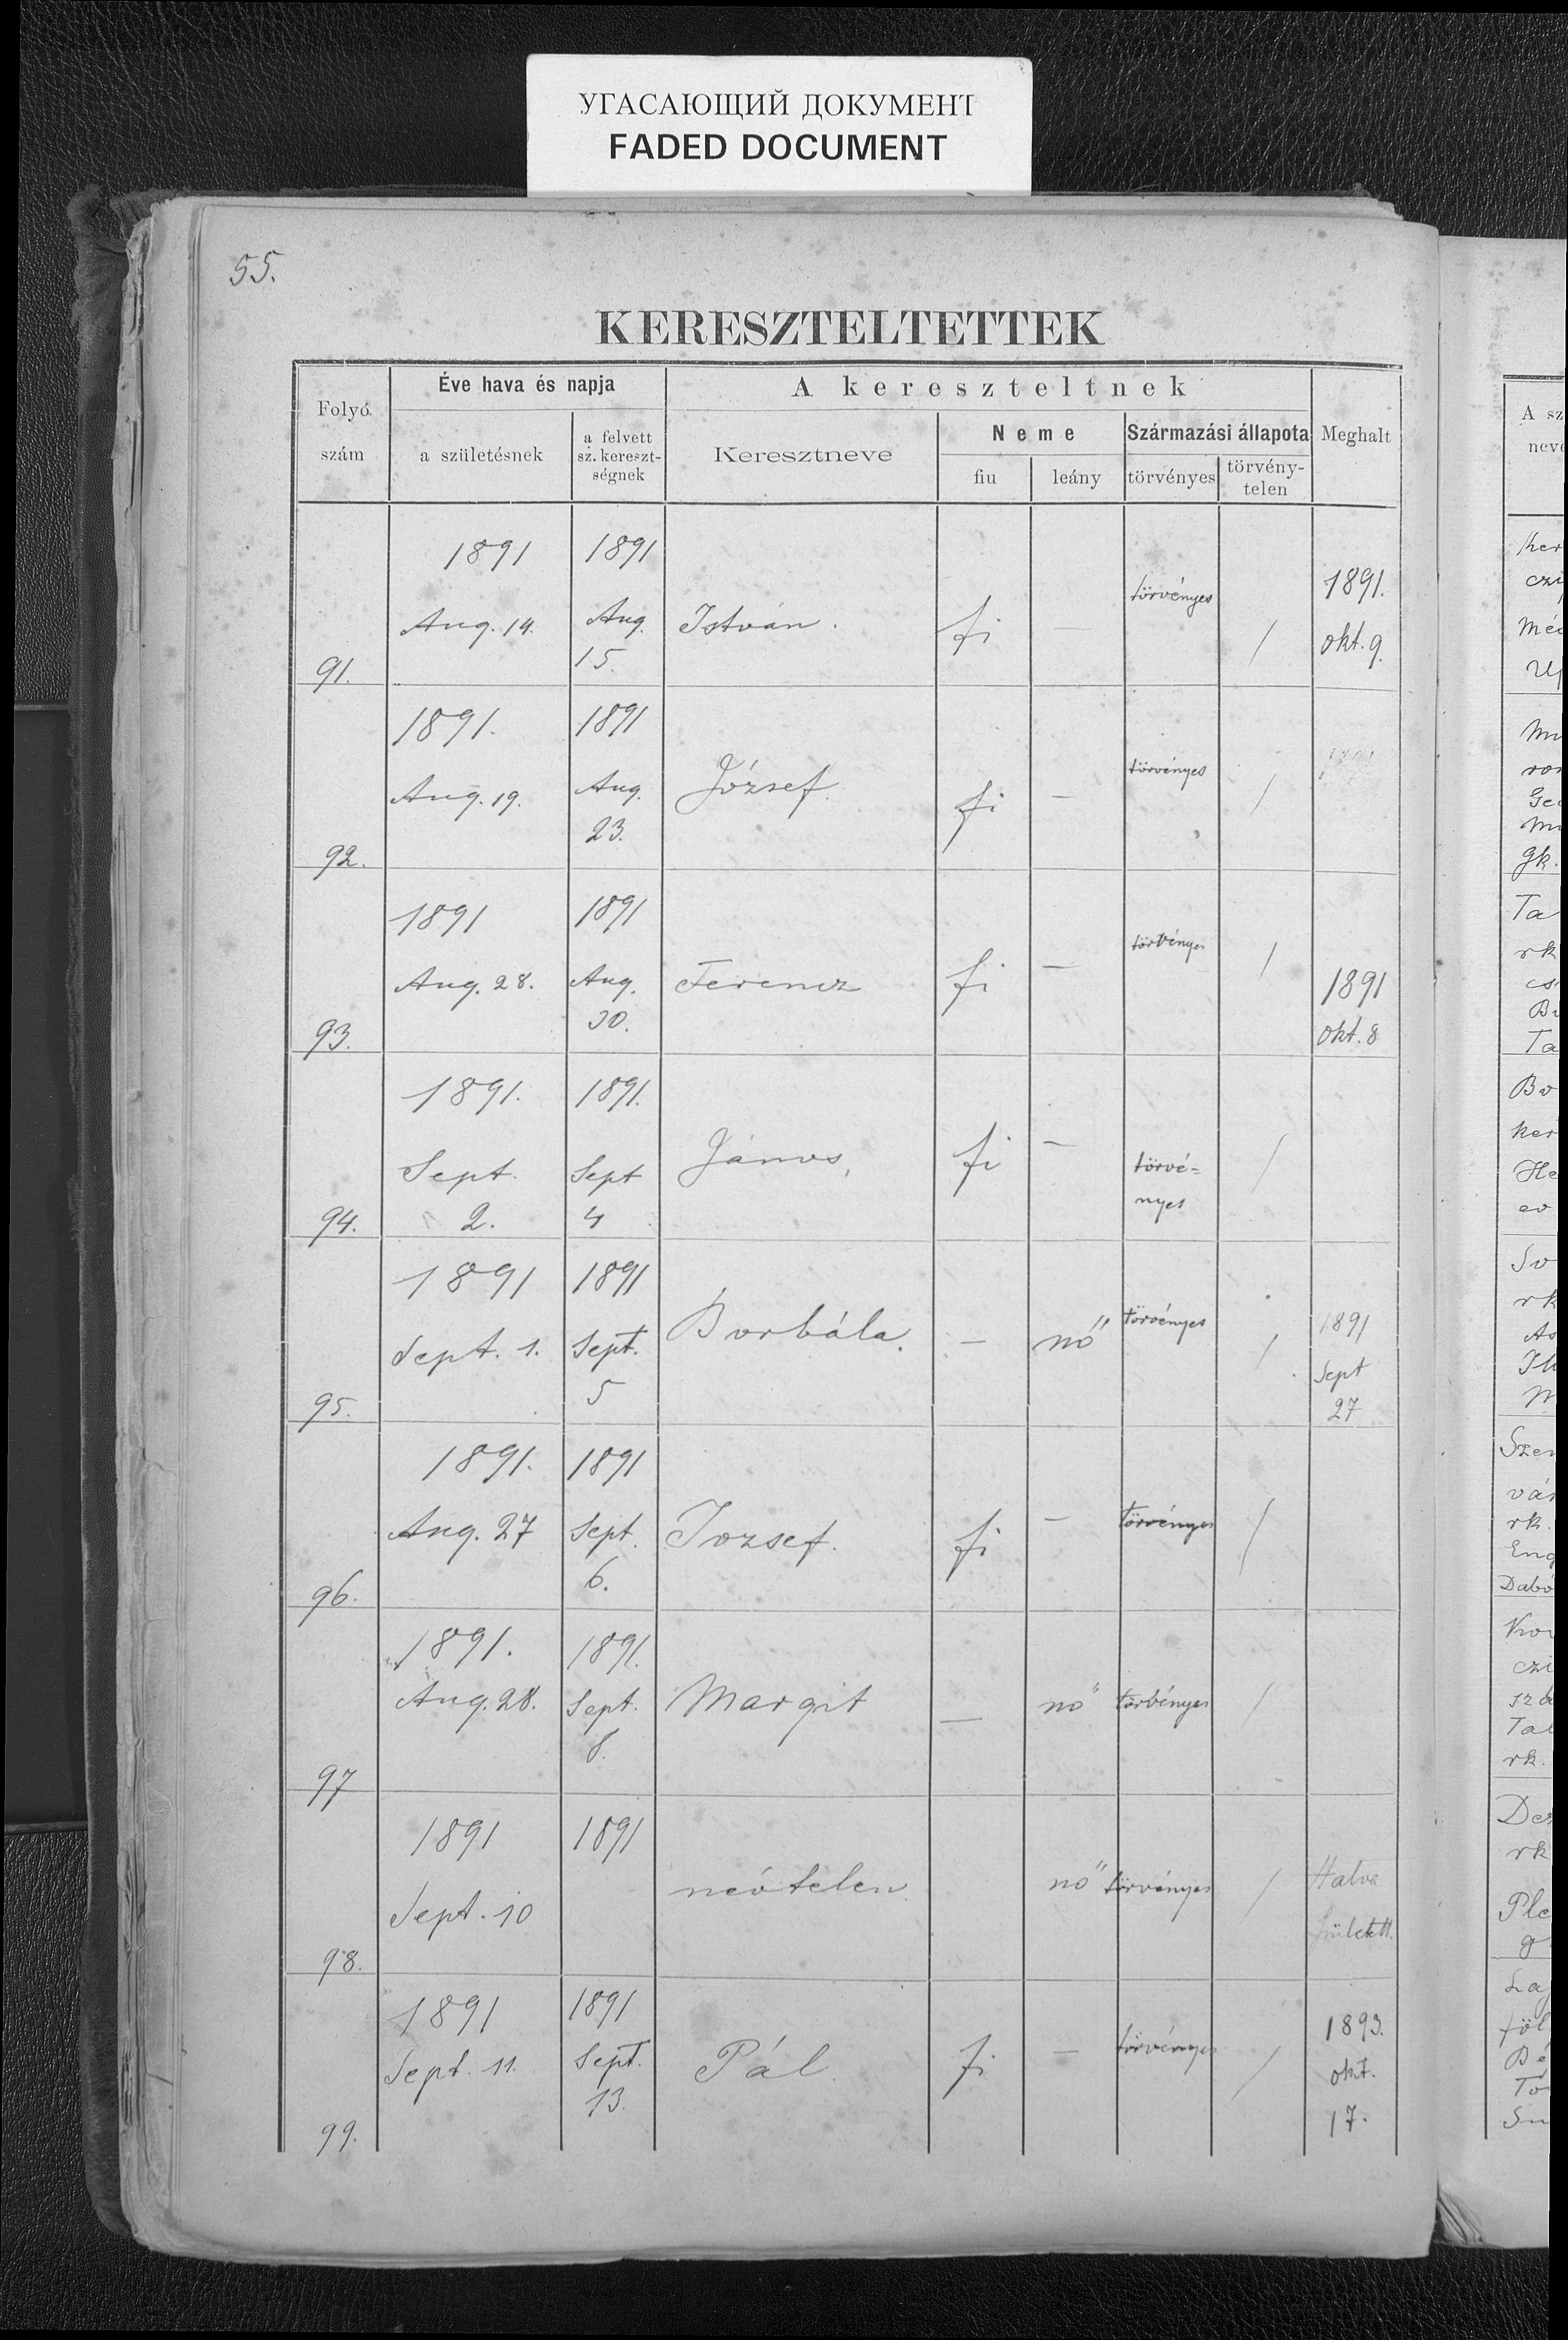 УГАСАЮЩИЙ ДОКУМЕНТ
FADED DOCUMENT
55.
KERESZTELTETTEK
Folyó szám
Éve hava és napja
a születésnek
a felvett sz. kereszt-ségnek
A kereszteltnek
Keresztneve
Neme
fiu
leány
Származási állapota
törvényes
törvény-telen
Meghalt
91. 1891 Aug. 14. 1891 Aug. 15. István. fi — törvényes / 1891. okt. 9.
92. 1891. Aug. 19. 1891 Aug. 23. József. fi — törvényes /
93. 1891 Aug. 28. 1891 Aug. 30. Ferencz fi — törvényes / 1891 okt. 8
94. 1891. Sept. 2. 1891. Sept 4 János, fi — törvé= nyes /
95. 1891 Sept. 1. 1891 Sept. 5 Borbála. — nő törvényes / 1891 Sept 27
96. 1891. Aug. 27 1891 Sept. 6. József. fi — törvényes /
97 1891. Aug. 28. 1891. Sept. 8. Margit — nő törvényes /
98. 1891 Sept. 10 1891 névtelen. nő törvényes / Halva született.
99. 1891 Sept. 11. 1891 Sept. 13. Pál. fi — törvényes / 1893. okt. 17.
A sz
neve
Ta
rk
Ta
ker
He
ev
rk
Szen
vár
rk.
Eng
czi
Tal
rk.
rk
Ple